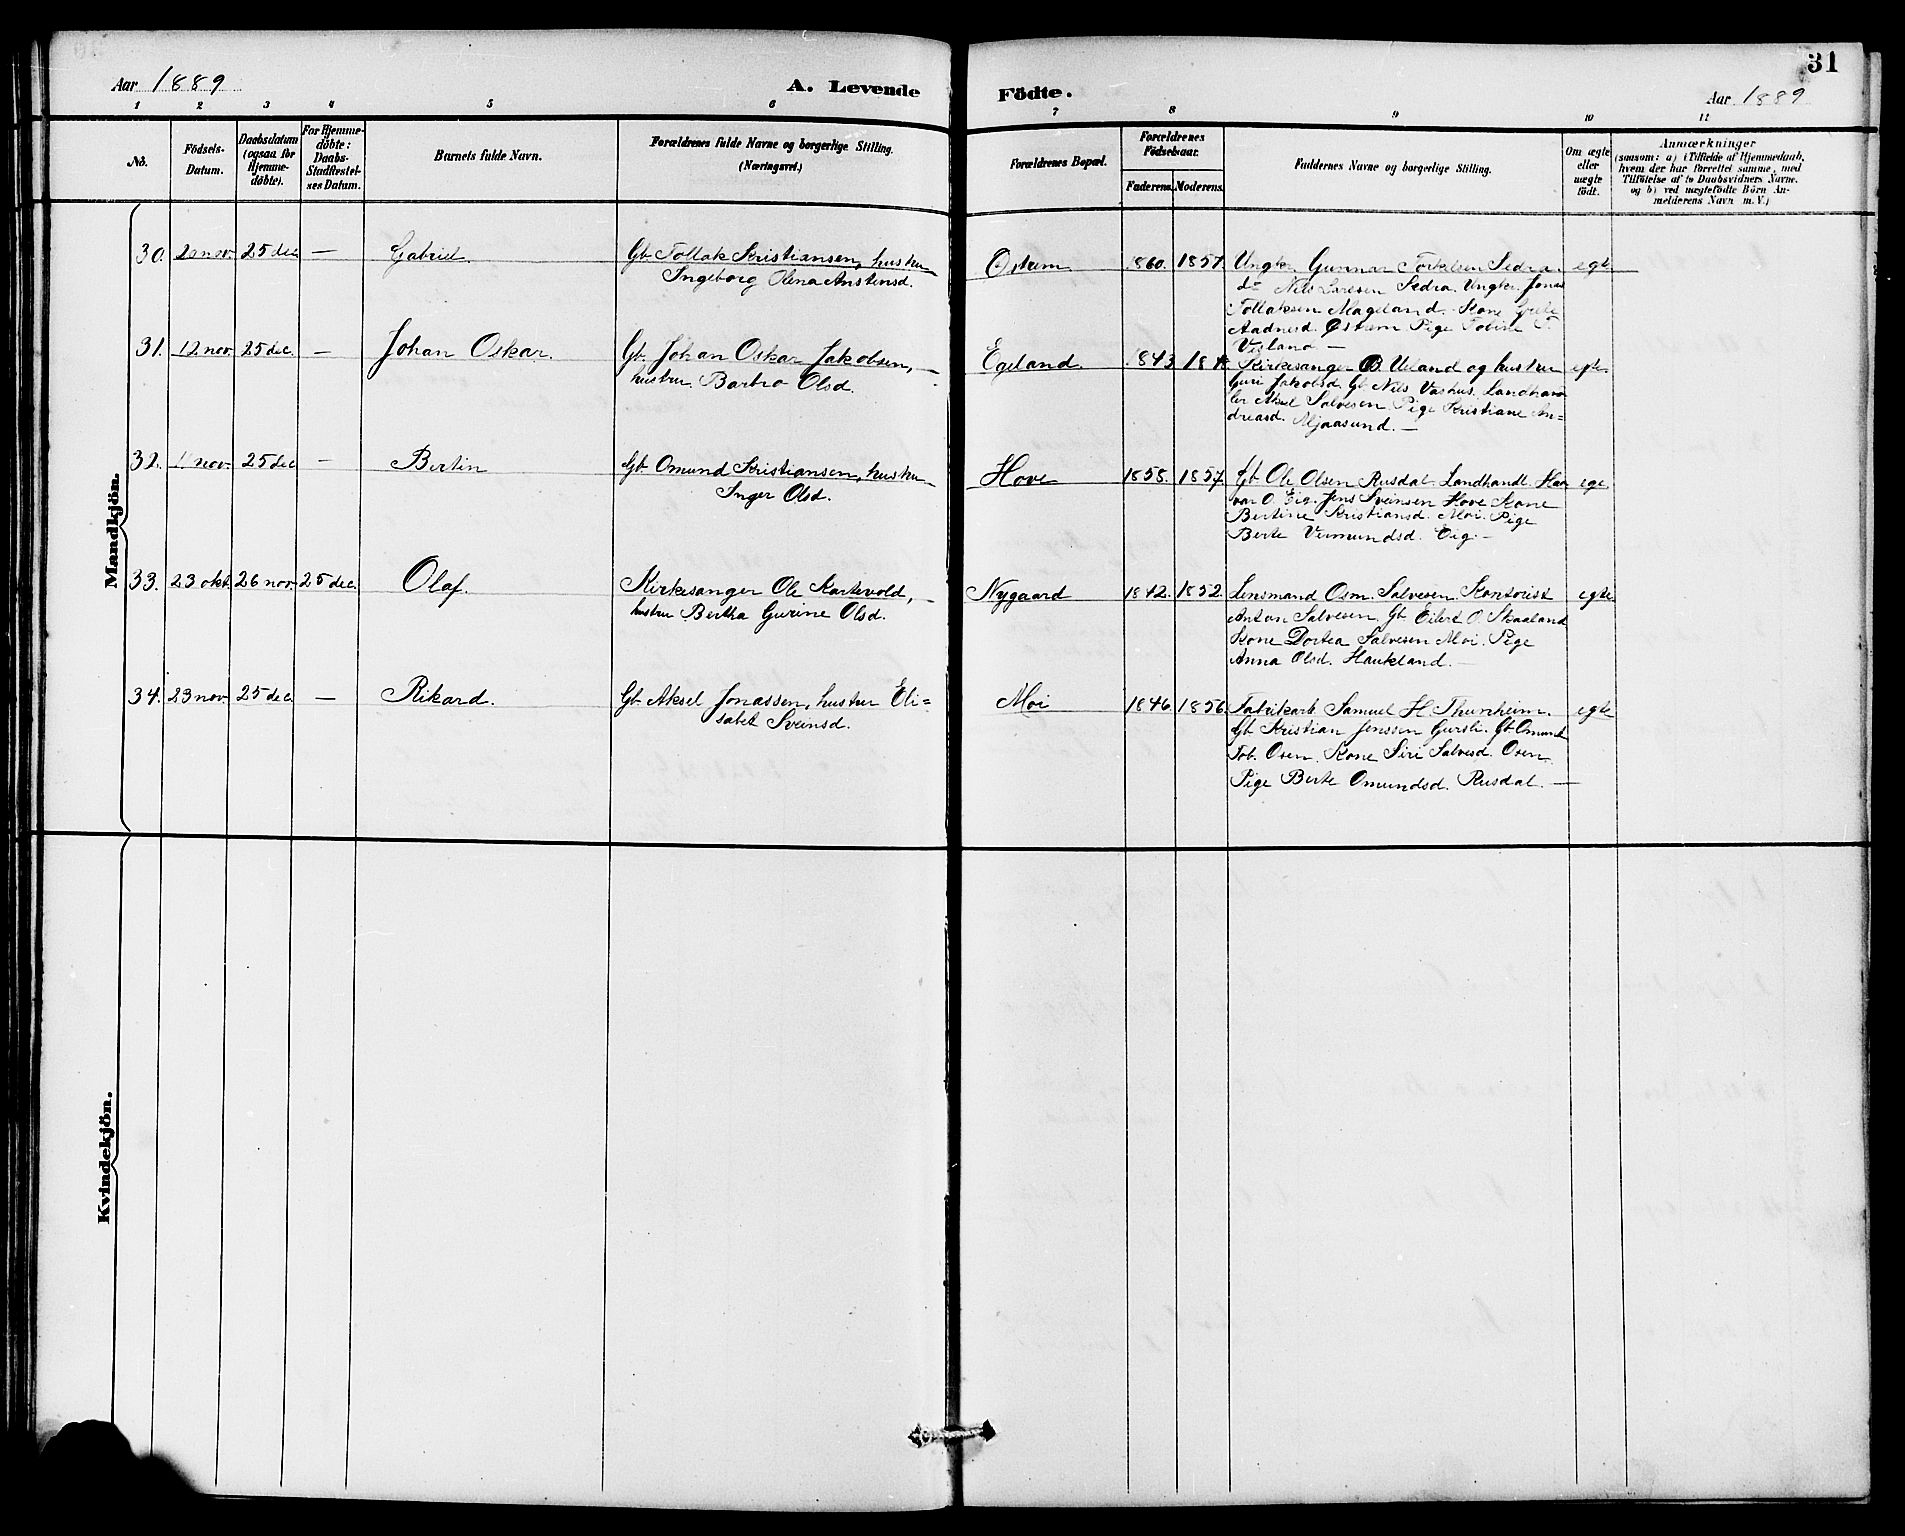 31
Aar 1889
A. Levende Födte.
Aar 1889
1 2 3 4 5 6 7 8 9 10 11
No.
Födsels-Datum.
Daabsdatum (ogsaa for Hjemme-döbte).
For Hjemme-döbte: Daabs-Stadfæstel-ses Datum.
Barnets fulde Navn.
Forældrenes fulde Navne og borgerlige Stilling. (Næringsvei.)
Forældrenes Bopæl.
Forældrenes Födselsaar.
Faderens. Moderens.
Faddernes Navne og borgerlige Stilling.
Om ægte eller uægte født.
Anmærkninger
(saasom: a) (Tilfælde af Hjemmedaab,
hvem der har forrettet samme, med
Tilføielse af to Daabsvidners Navne.
og b) ved uægtefödte Börn An-
melderens Navn m.V.)
Mandkjön.
30. 20 nov. 25 dec. — Gabriel Gb. Tollak Kristiansen, hustru
Ingeborg Olena Anstensd.
Østrem 1860. 1857. Ungkr. Gunnar Torkelsen Sedra. egte
do Nils Larsen Sedra. Ungkr. Jonas
Tollaksen Mageland. Kone Grete
Aadnesd. Østrem Pige Tobine T.
Vesland —
31. 12 nov. 25 dec. — Johan Oskar. Gb. Johan Oskar Jakobsen, —
hustru. Barbro Olsd.
Egeland. 1843 Kirkesanger B. Ueland og hustru egte
Guri Jakobsd. Gb. Nils Vashus. Landhand
ler Aksel Salvesen. Pige Kristiane An=
dreasd. Mjaasund. —
32. nov. 25 dec — Bertin Gb. Omund Kristiansen, hustru
Inger Olsd.
Hove 1858. 1857. Gb. Ole Olsen Rusdal. Landhandl. Haa
var O. Eig. Jens Sveinsen Hove Kone
Bertine Kristiansd. Moi. Pige
Berte Vermundsd. Eig. —
33. 23 okt. 26 nov. 25 dec. Olaf. Kirkesanger Ole Kartevold, —
hustru Bertha Gurine Olsd.
Nygaard 1842. 1852. Lensmand Osm. Salvesen. Kontorist egte
Anton Salvesen. Gb. Eilert O. Skaaland
Kone Dortea Salvesen Moi. Pige
Anna Olsd. Haukland. —
34. 23 nov. 25 dec. — Rikard. Gb. Aksel Jonassen, hustru Eli=
sabet Sveinsd.
Moi 1846. 1856. Fabrikarb. Samuel H. Thunheim. egte
Gb. Kristian Jenssen Gursli. Gb. Omund
Tob. Osen. Kone Siri Salvesd. Osen.
Pige Berte Omundsd. Rusdal. —
Kvindekjön.